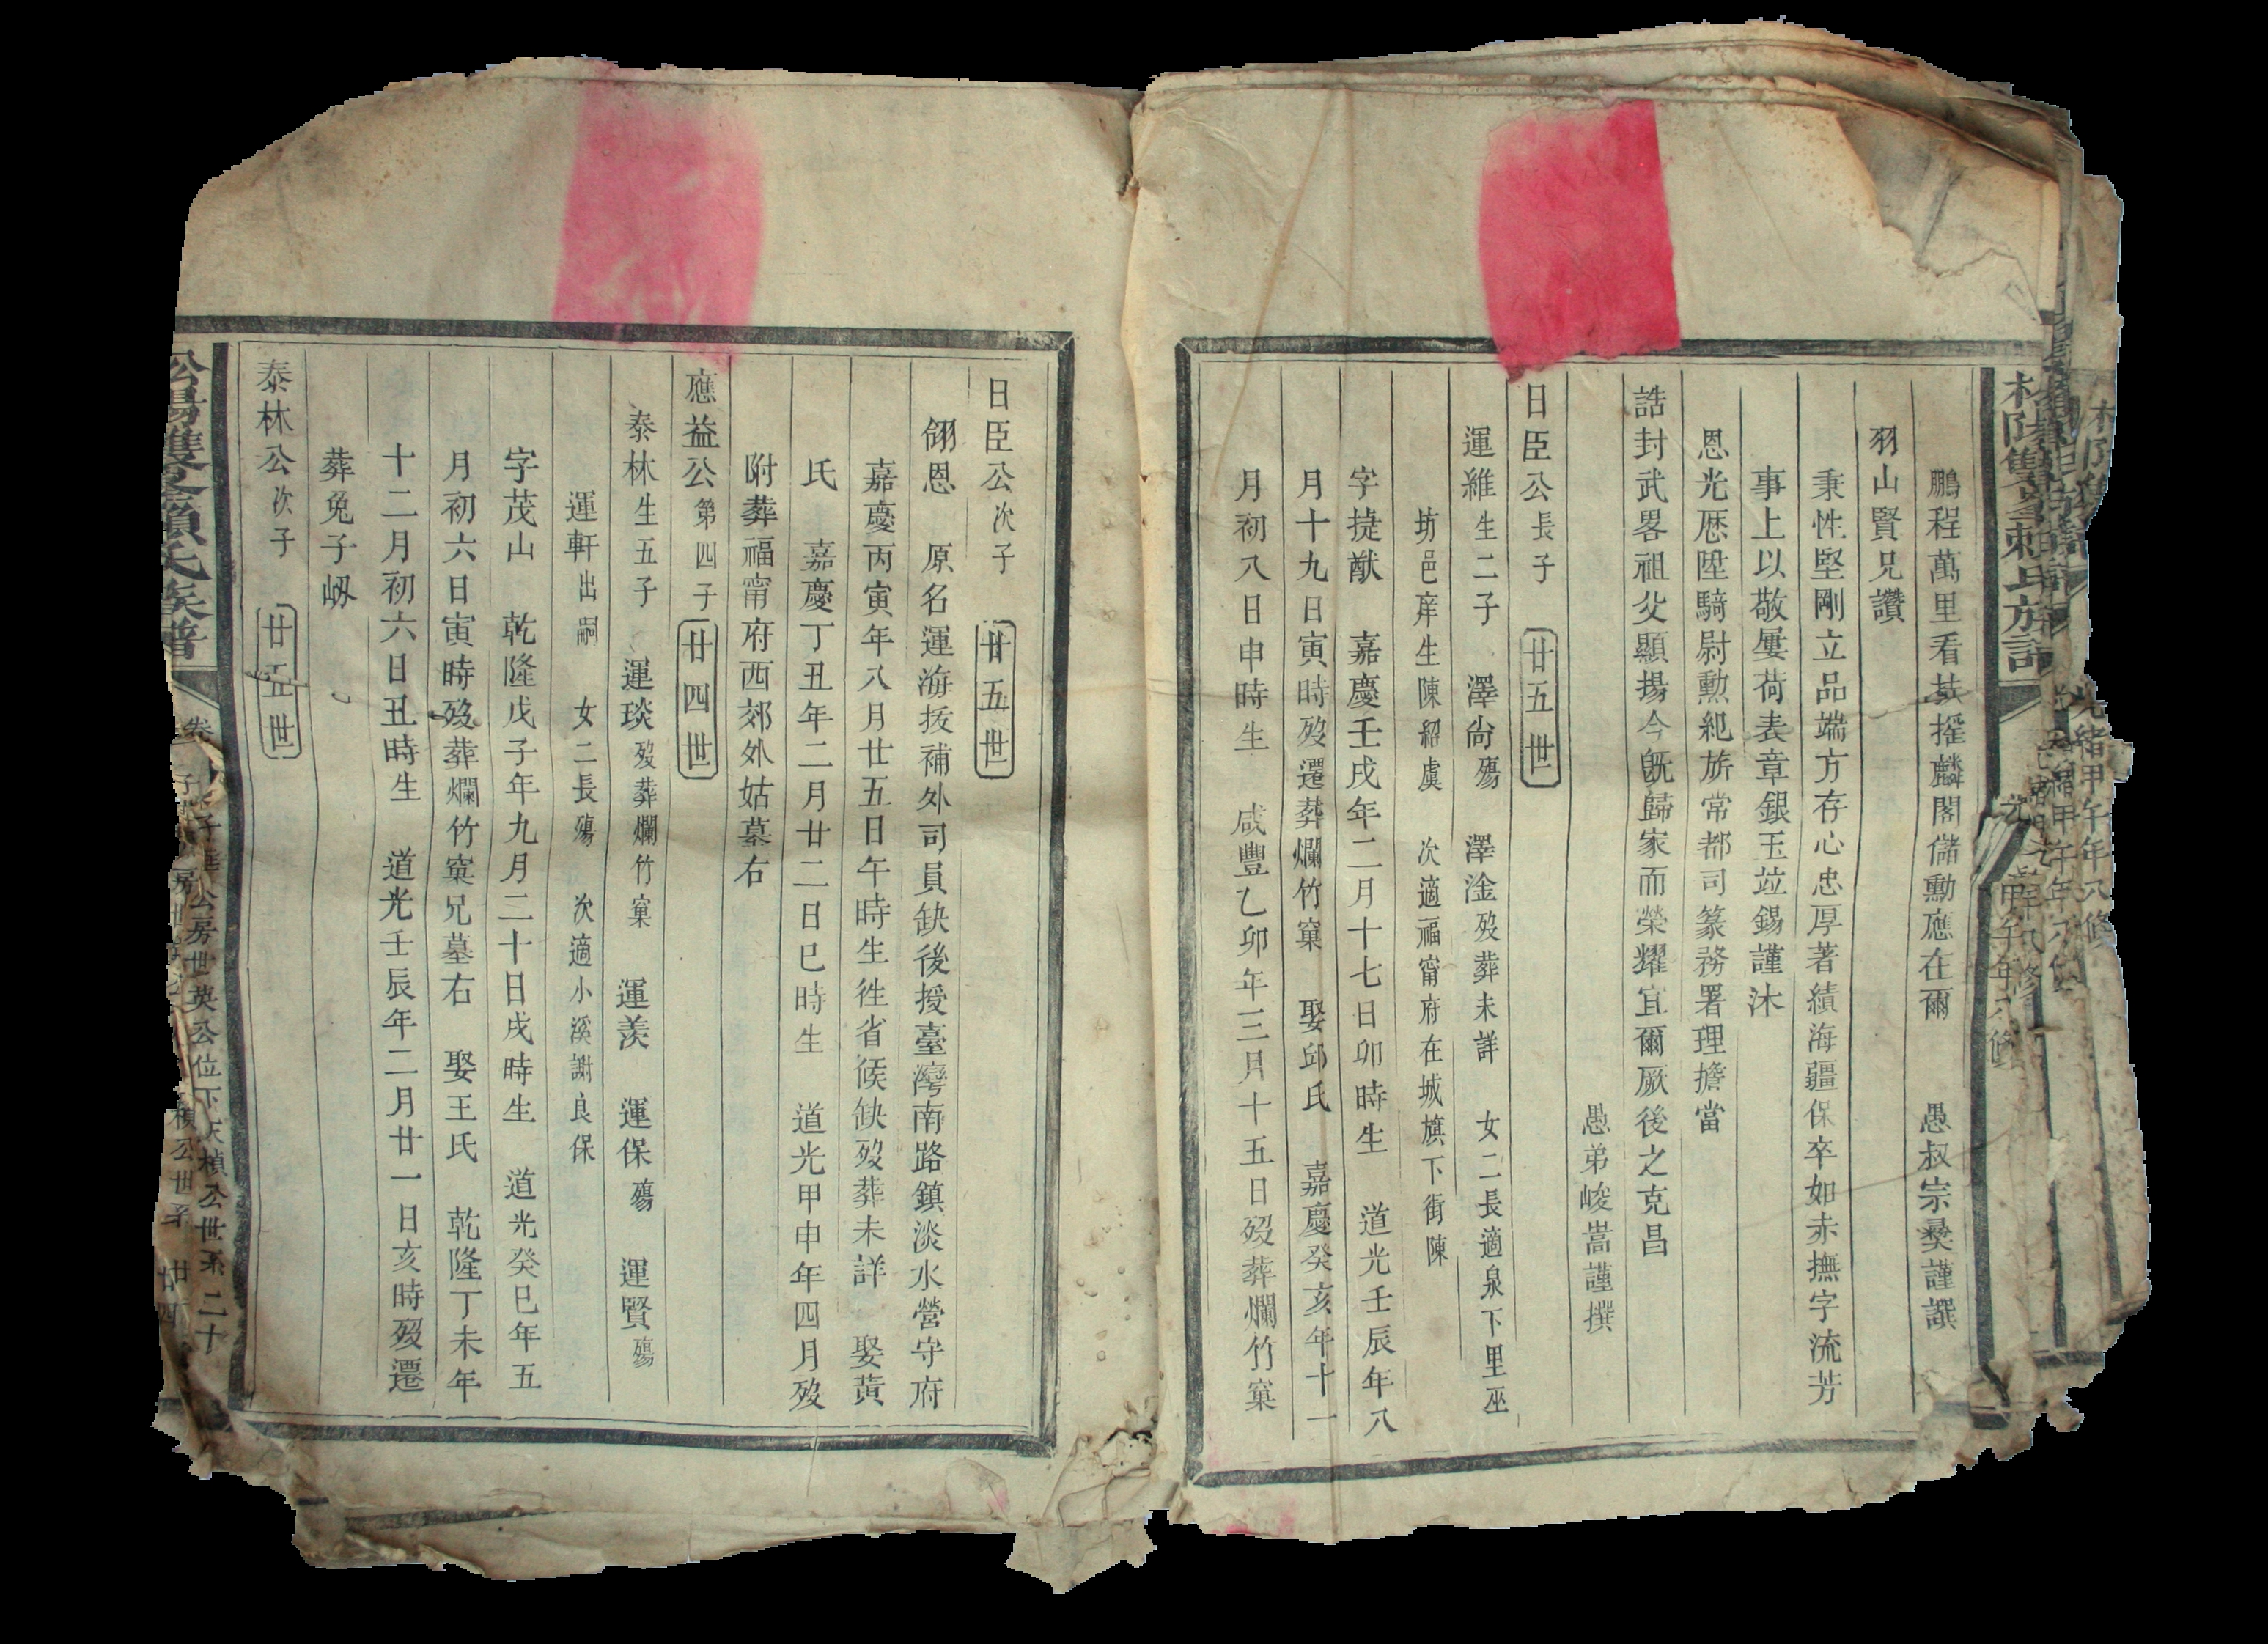 鵬程萬里看扶搖麟閣儲勳應在爾　愚叔宗彝謹譔
羽山賢兄讚
秉性堅剛立品端方存心忠厚著績海疆保卒如赤撫字流芳
事上以敬屢荷表章銀玉竝錫謹沐
恩光歷陞騎尉勳紀旂常都司篆務署理擔當
誥封武畧祖父顯揚今旣歸家而榮耀宜爾厥後之克昌
愚弟峻嵩謹撰
日臣公長子　廿五世
運維生二子　澤尙殤　澤淦歿葬未詳　女二長適泉下里巫
坊邑庠生陳紹虞　次適福甯府在城旗下街陳
字捷猷　嘉慶壬戌年二月十七日卯時生　道光壬辰年八
月十九日寅時歿遷葬爛竹窠　娶邱氏　嘉慶癸亥年十一
月初八日申時生　咸豐乙卯年三月十五日歿葬爛竹窠
日臣公次子　廿五世
翎恩　原名運海拔補外司員缺後授臺灣南路鎮淡水營守府
嘉慶丙寅年八月廿五日午時生徃省候缺歿葬未詳　娶黃
氏　嘉慶丁丑年二月廿二日巳時生　道光甲申年四月歿
附葬福甯府西郊外姑墓右
應益公第四子　廿四世
泰林生五子　運琰歿葬爛竹窠　運羡　運保殤　運賢殤
運軒出嗣　女二長殤　次適小溪謝良保
字茂山　乾隆戊子年九月二十日戌時生　道光癸巳年五
月初六日寅時歿葬爛竹窠兄墓右　娶王氏　乾隆丁未年
十二月初六日丑時生　道光壬辰年二月廿一日亥時歿遷
葬兔子㘭
泰林公次子　廿五世